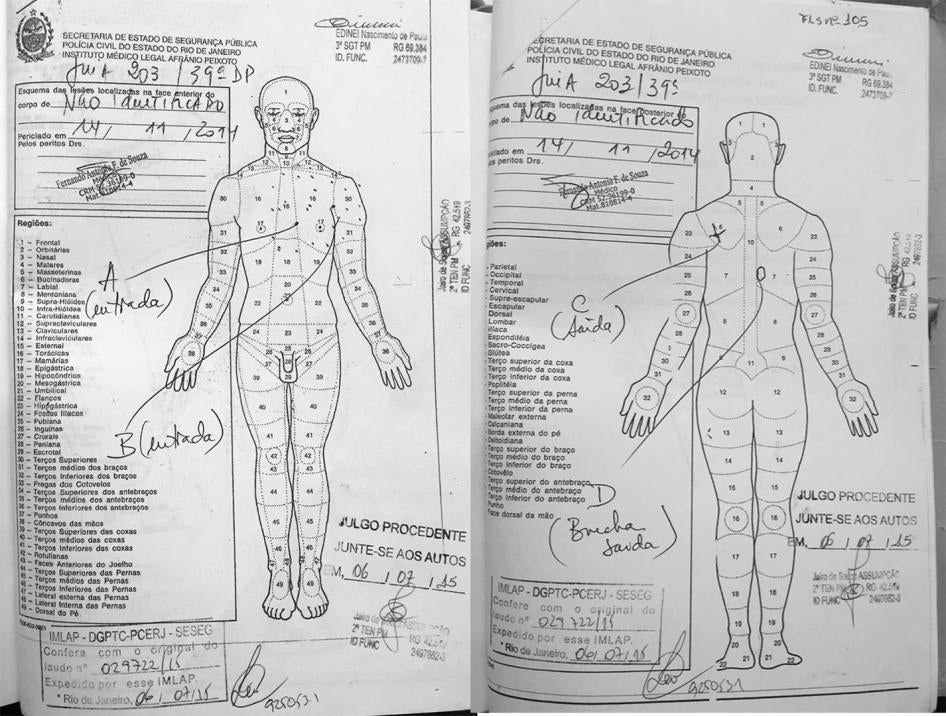 SECRETARIA DE ESTADO DE SEGURANÇA PÚBLICA
POLÍCIA CIVIL DO ESTADO DO RIO DE JANEIRO
INSTITUTO MÉDICO LEGAL AFRÂNIO PEIXOTO
EDINEI Nascimento de Paula
3º SGT PM RG 69.384
ID. FUNC. 2473709-7
GUIA 203 / 39ª DP
Esquema das lesões localizadas na face anterior do
corpo de NÃO IDENTIFICADO
Periciado em 14 / 11 / 2014
Pelos peritos Drs.
Fernando Antonio F. de Souza
Médico
CRM 52-36199-0
Mat.810814-4
Regiões:
1 – Frontal
2 – Orbitárias
3 – Nasal
4 – Malares
5 – Masseterinas
6 – Bucinadoras
7 – Labial
8 – Mentoniana
9 – Supra-Hióidea
10 – Infra-Hióidea
11 – Carotidianas
12 – Supraclaviculares
13 – Claviculares
14 – Infraclaviculares
15 – Esternal
16 – Torácicas
17 – Mamárias
18 – Epigástrica
19 – Hipocôndrios
20 – Mesogástrica
21 – Umbilical
22 – Flancos
23 – Hipogástrica
24 – Fossas Ilíacas
25 – Pubiana
26 – Inguinas
27 – Crurais
28 – Peniana
29 – Escrotal
30 – Terços Superiores
31 – Terços médios dos braços
32 – Terços Inferiores dos braços
33 – Pregas dos Cotovelos
34 – Terços Superiores dos antebraços
35 – Terços médios dos antebraços
36 – Terços Inferiores dos antebraços
37 – Punhos
38 – Côncavos das mãos
39 – Terços Superiores das coxas
40 – Terços médios das coxas
41 – Terços Inferiores das coxas
42 – Rotulianas
43 – Faces Anteriores do Joelho
44 – Terços Superiores das Pernas
45 – Terços médios das Pernas
46 – Terços Inferiores das Pernas
47 – Lateral externa das Pernas
48 – Lateral Interna das Pernas
49 – Dorsal do Pé.
A
(entrada)
B (entrada)
Jairo de Souza ASSUMPÇÃO
2º TEN PM RG 42.519
ID FUNC 2497652-3
JULGO PROCEDENTE
JUNTE-SE AOS AUTOS
EM, 06 / 07 / 15
Jairo de Souza ASSUMPÇÃO
2º TEN PM RG 42.519
ID FUNC 2497652-3
IMLAP - DGPTC-PCERJ - SESEG
Confere com o original do
laudo nº 029722/15
Expedido por esse IMLAP.
* Rio de Janeiro, 06/07/15
925053.1
FLS nº 105
SECRETARIA DE ESTADO DE SEGURANÇA PÚBLICA
POLÍCIA CIVIL DO ESTADO DO RIO DE JANEIRO
INSTITUTO MÉDICO LEGAL AFRÂNIO PEIXOTO
EDINEI Nascimento de Paula
3º SGT PM RG 69.384
ID. FUNC. 2473709-7
GUIA 203 / 39ª
quema das lesões localizadas na face posterior do
corpo de NÃO IDENTIFICADO
Periciado em 14 / 11 / 2014
Pelos peritos Drs.
Fernando Antonio F. de Souza
Médico
CRM 52-36199-0
Mat.810814-4
giões:
- Parietal
- Occipital
- Temporal
- Cervical
- Supra-escapular
- Escapular
- Dorsal
- Lombar
- Ilíaca
- Espondiléia
- Sacro-Coccígea
- Glútea
- Terço superior da coxa
- Terço médio da coxa
- Terço inferior da coxa
- Poplitéia
- Terço superior da perna
- Terço médio da perna
- Terço inferior da perna
- Maleolar externa
- Calcaniana
- Borda externa do pé
- Deltoidiana
- Terço superior do braço
- Terço médio do braço
- Terço Inferior do braço
- Cotovêlo
- Terço superior do antebraço
- Terço médio do antebraço
- Terço inferior do antebraço
Punho
Face dorsal da mão
C
(Saída)
D
(Saída)
Jairo de Souza ASSUMPÇÃO
2º TEN PM RG 42.519
ID FUNC 2497652-3
JULGO PROCEDENTE
JUNTE-SE AOS AUTOS
EM, 06 / 07 / 15
Jairo de Souza ASSUMPÇÃO
2º TEN PM RG 42.519
ID FUNC 2497652-3
IMLAP - DGPTC-PCERJ - SESEG
Confere com o original do
laudo nº 029722/15
Expedido por esse IMLAP.
* Rio de Janeiro, 06/07/15
925053.1